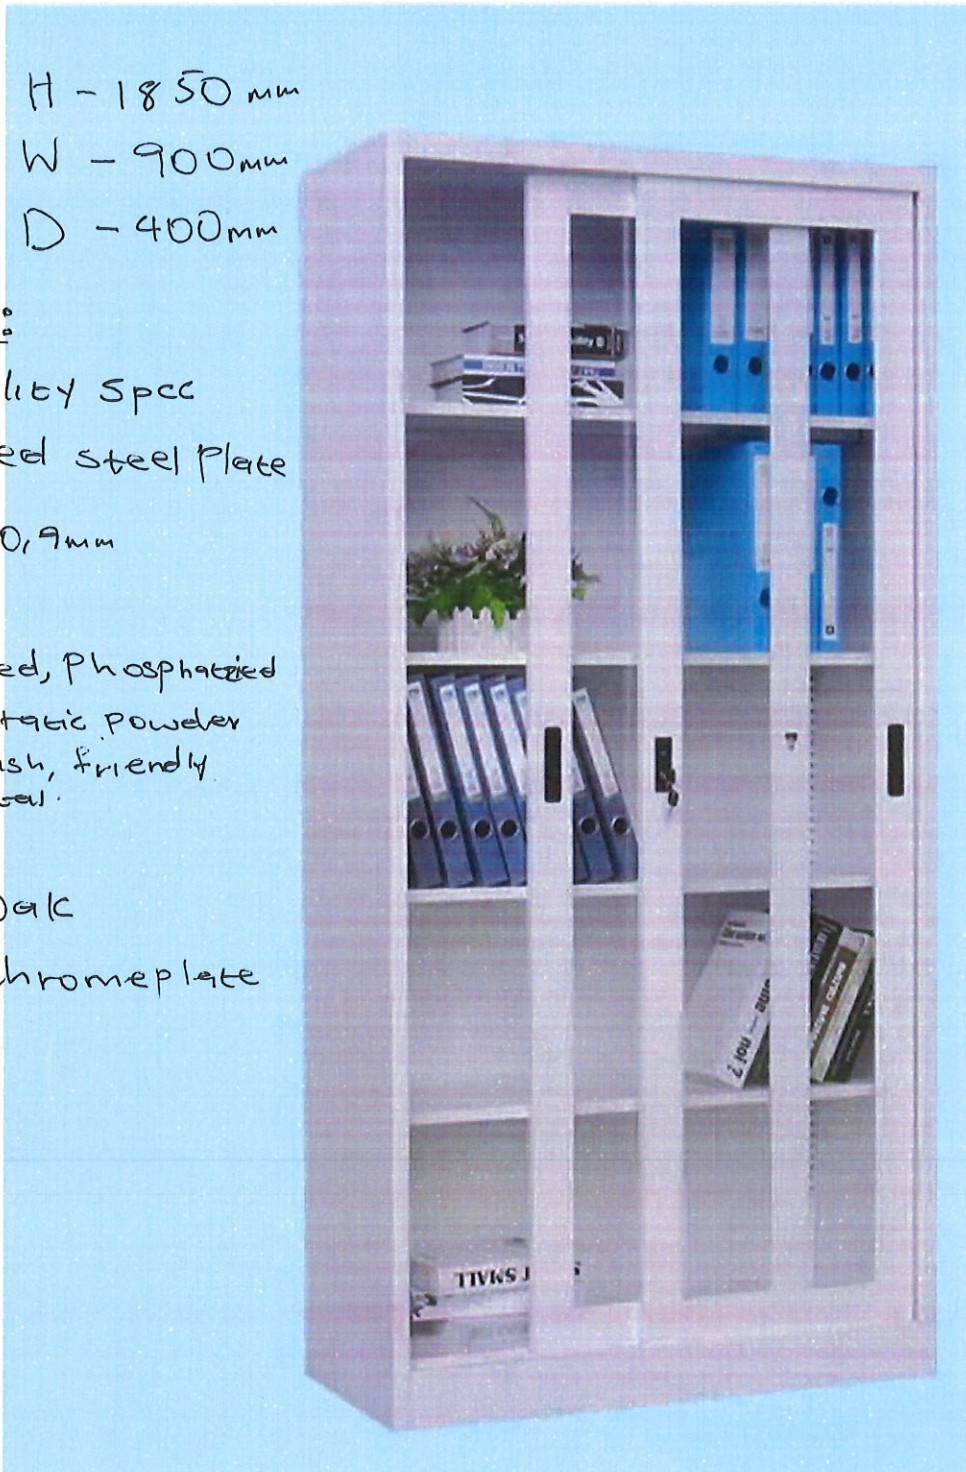 H - 1850 mm
W - 900mm
D - 400mm
:
lity Spcc
ed steel Plate
0,9mm
ed, Phosphatzied
tatic Powder
ish, friendly
tal.
oak
hromeplate
TIVWS